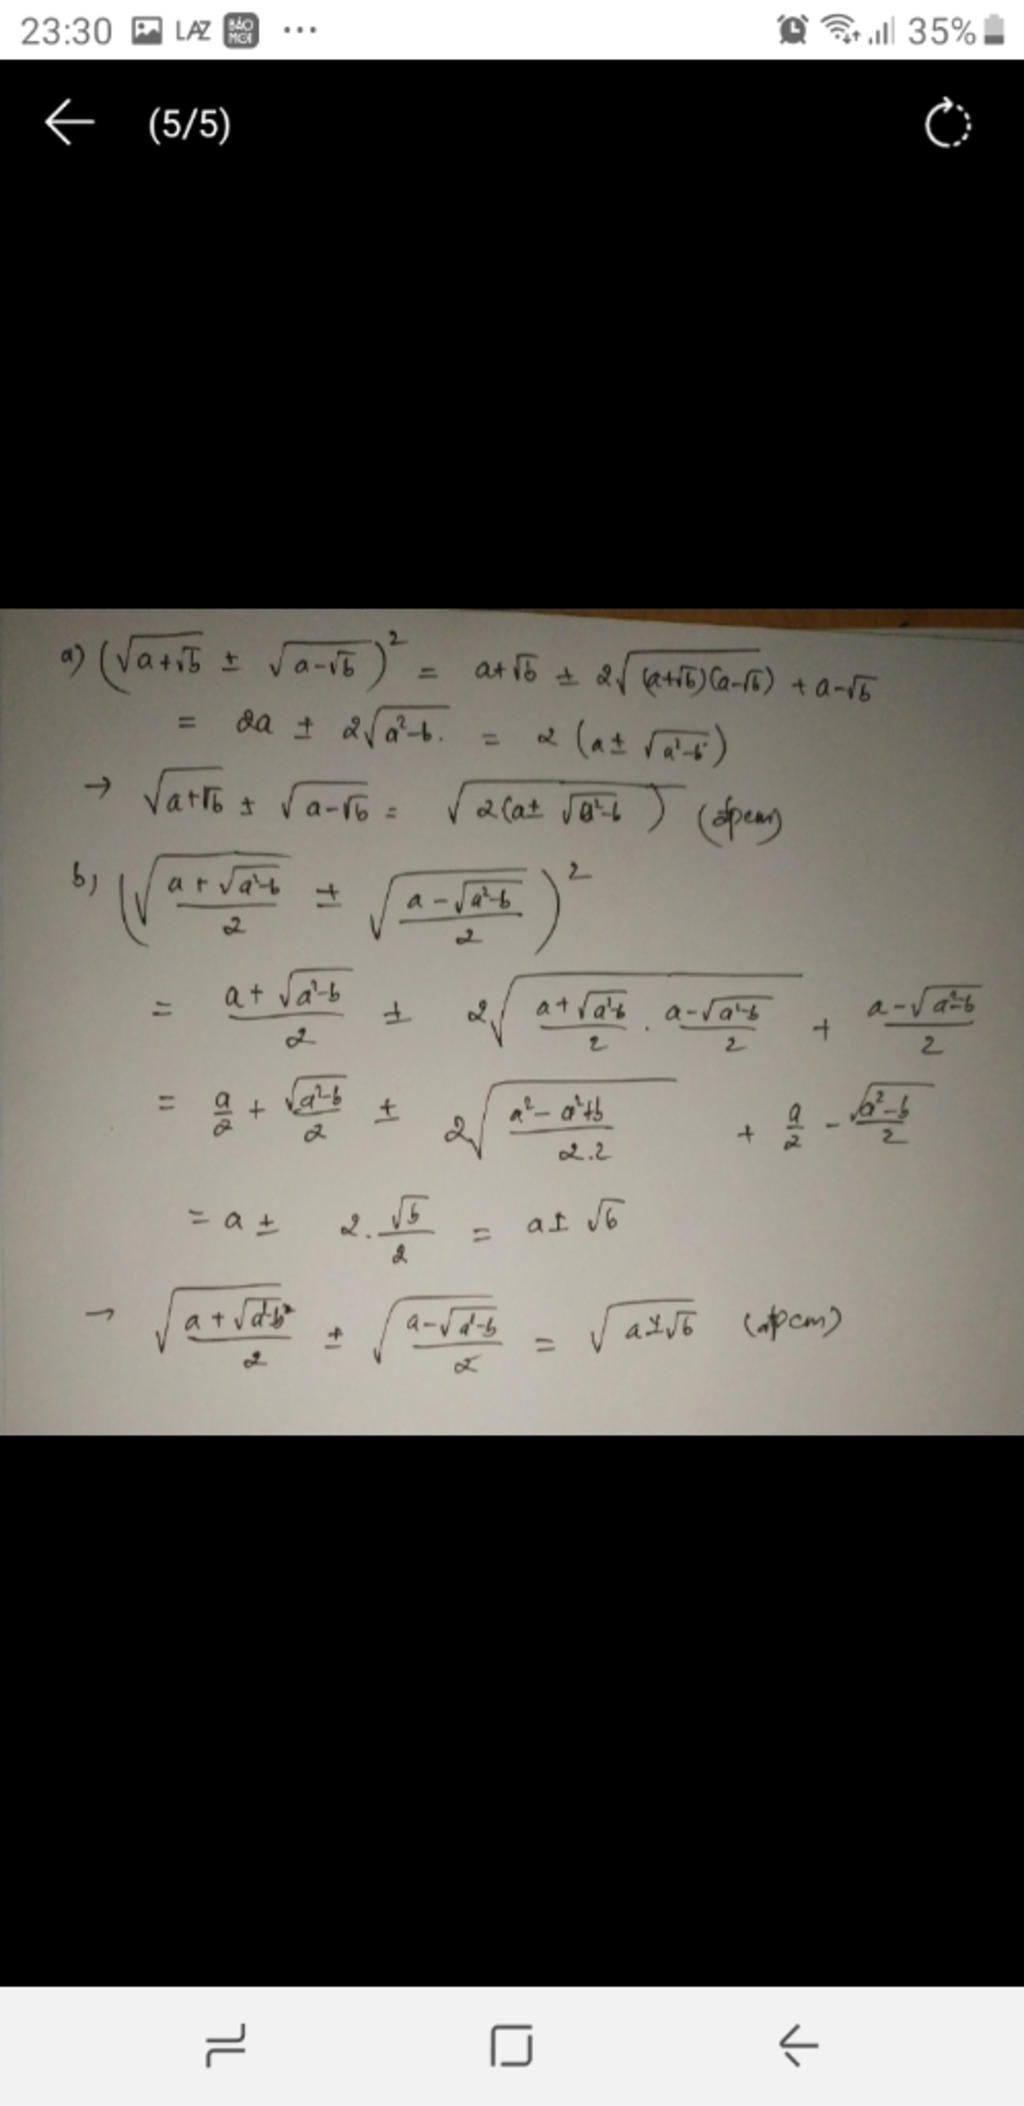 23:30 LAZ BÁO MỚI ... 35%
(5/5)
a) (√(a+√b) ± √(a-√b))² = a+√b ± 2√((a+√b)(a-√b)) + a-√b
= 2a ± 2√(a²-b). = 2 (a ± √(a²-b))
→ √(a+√b) ± √(a-√b) = √(2(a ± √(a²-b))) (đpcm)
b) (√((a+√(a²-b))/2) ± √((a-√(a²-b))/2))²
= (a+√(a²-b))/2 ± 2√((a+√(a²-b))/2 . (a-√(a²-b))/2) + (a-√(a²-b))/2
= a/2 + √(a²-b)/2 ± 2√((a²-a²+b)/2.2) + a/2 - √(a²-b)/2
= a ± 2.√b/2 = a ± √b
→ √((a+√(a²-b))/2) ± √((a-√(a²-b))/2) = √(a±√b) (đpcm)